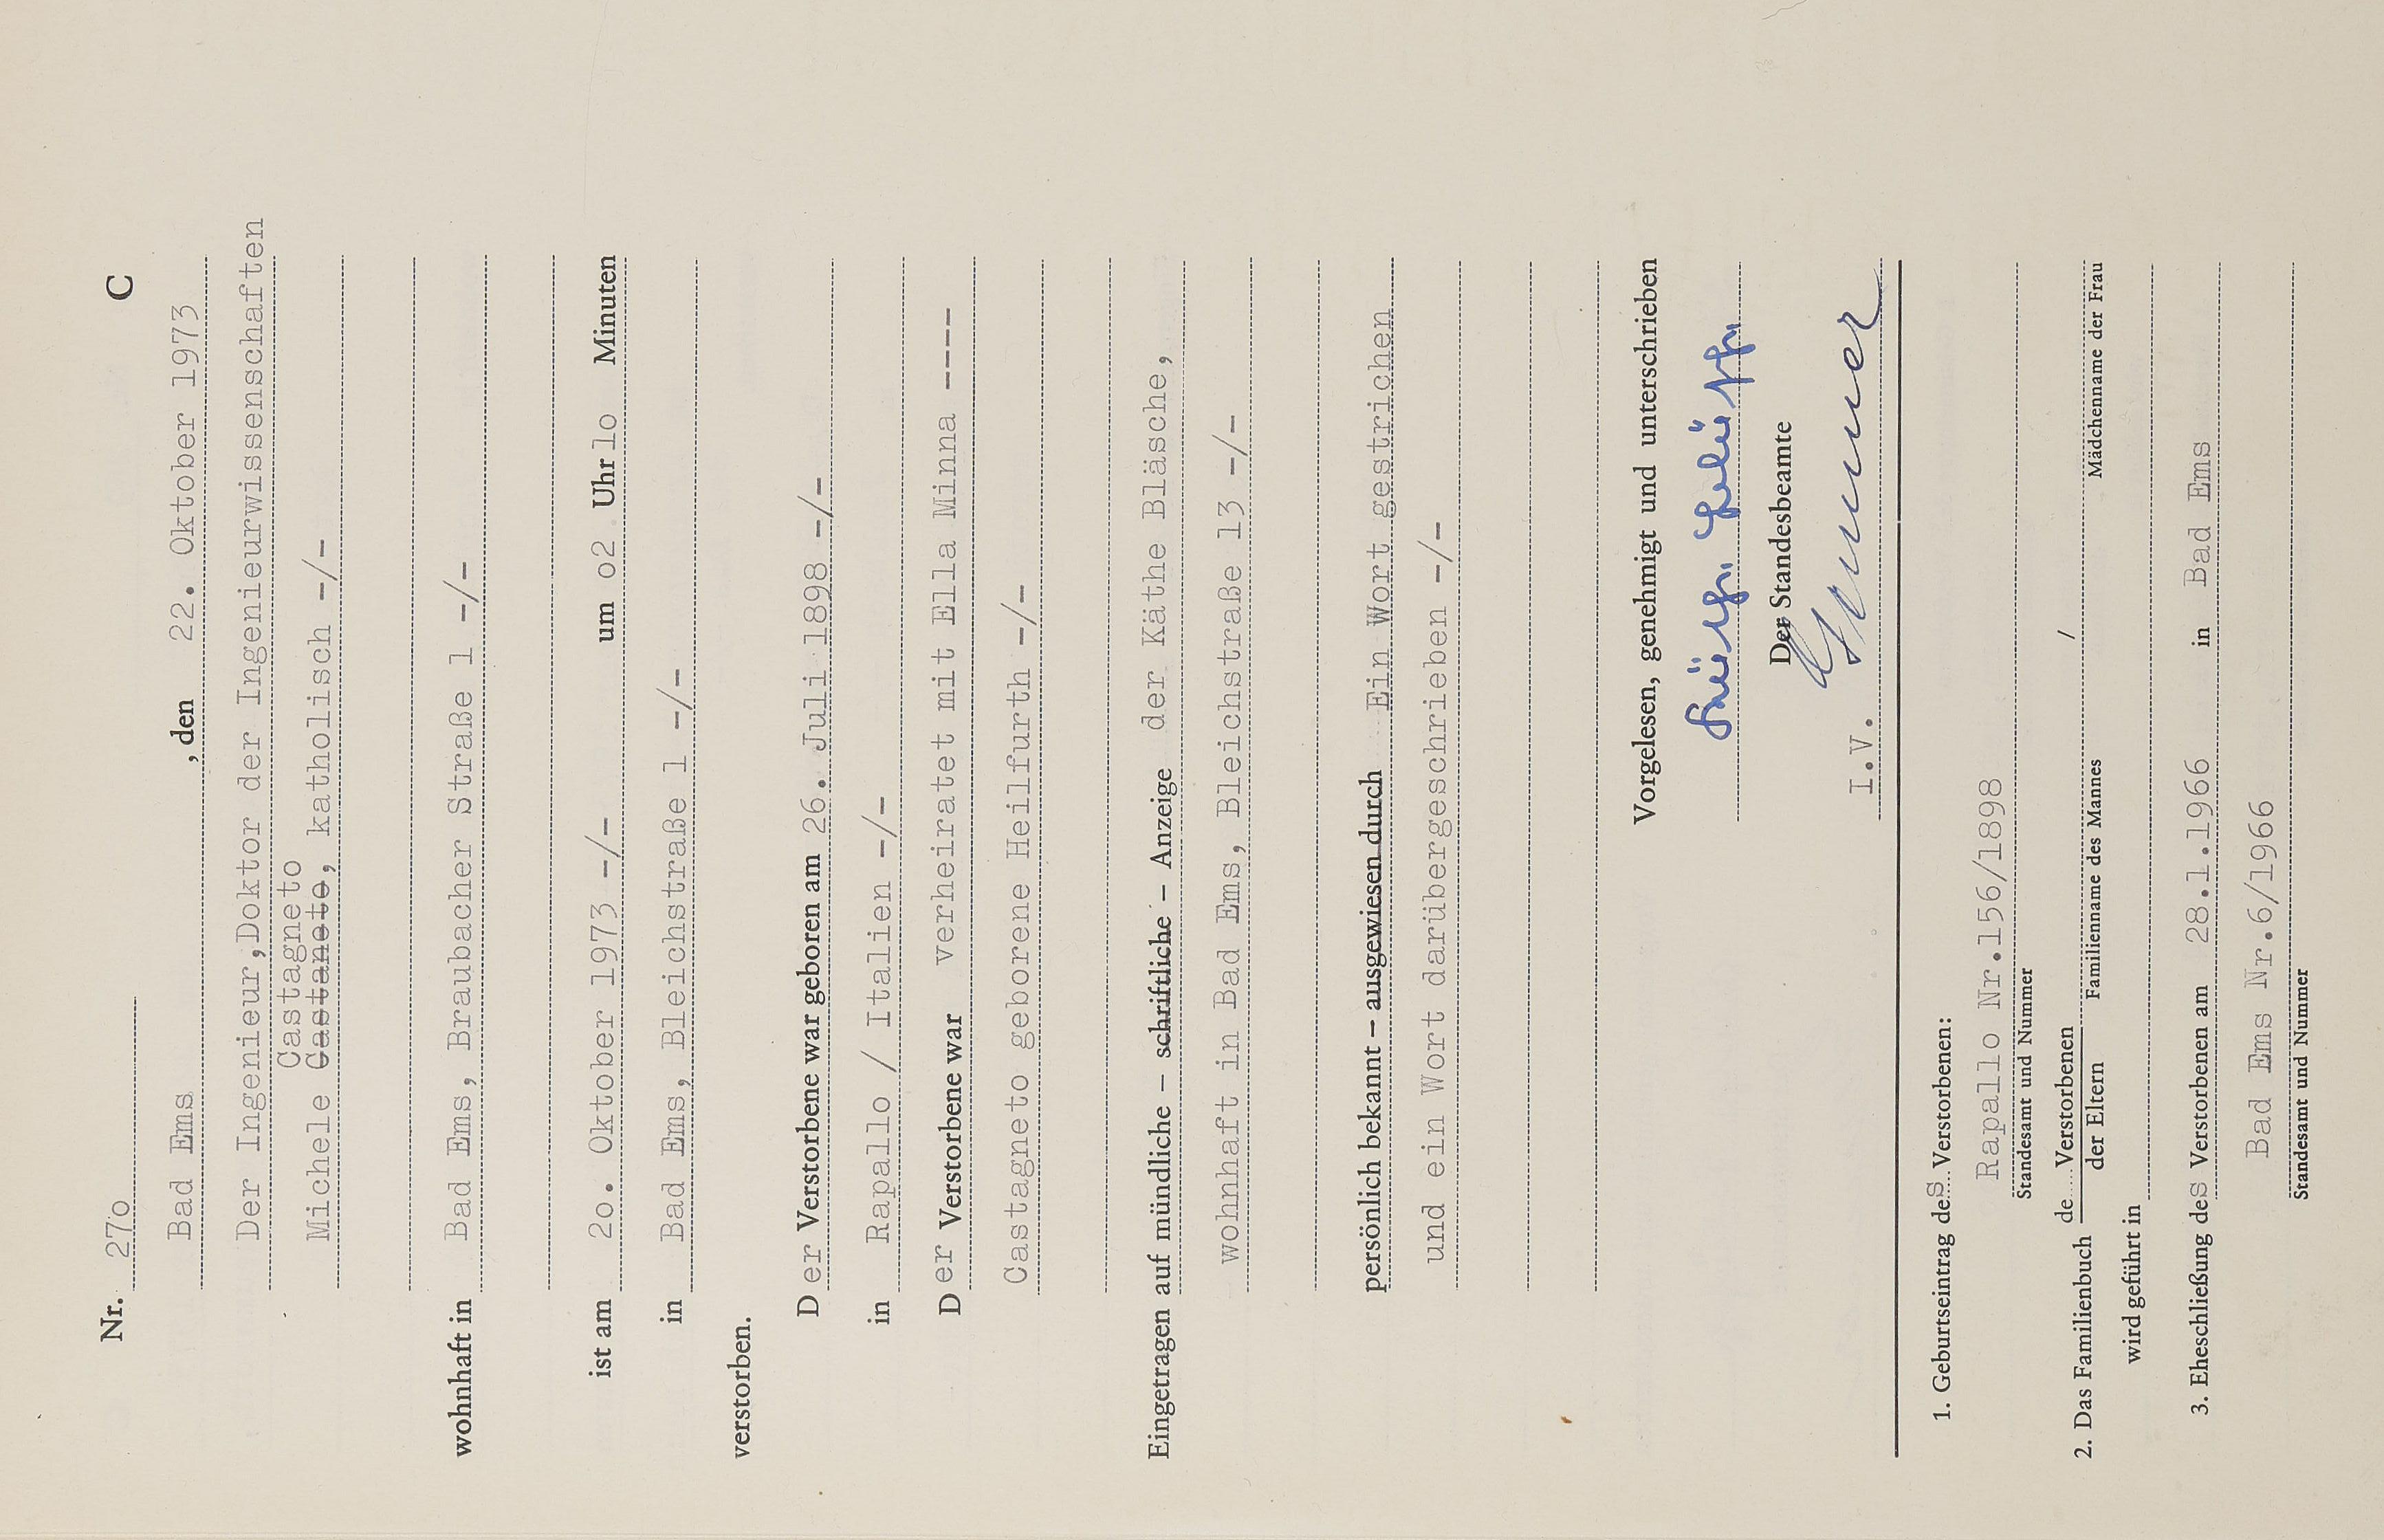 Nr. 27o C
Bad Ems , den 22. Oktober 1973
Der Ingenieur,Doktor der Ingenieurwissenschaften
Castagneto
Michele Castaneto, katholisch -/-
wohnhaft in Bad Ems, Braubacher Straße 1 -/-
ist am 2o. Oktober 1973 -/- um o2 Uhr 1o Minuten
in Bad Ems, Bleichstraße 1 -/-
verstorben.
Der Verstorbene war geboren am 26. Juli 1898 -/-
in Rapallo / Italien -/-
Der Verstorbene war verheiratet mit Ella Minna ----
Castagneto geborene Heilfurth -/-
Eingetragen auf mündliche – schriftliche – Anzeige der Käthe Bläsche,
wohnhaft in Bad Ems, Bleichstraße 13 -/-
persönlich bekannt – ausgewiesen durch Ein Wort gestrichen
und ein Wort darübergeschrieben -/-
Vorgelesen, genehmigt und unterschrieben
Der Standesbeamte
I.V.
1. Geburtseintrag des Verstorbenen:
Rapallo Nr.156/1898
Standesamt und Nummer
2. Das Familienbuch de Verstorbenen /
der Eltern Familienname des Mannes Mädchenname der Frau
wird geführt in
3. Eheschließung des Verstorbenen am 28.1.1966 in Bad Ems
Bad Ems Nr.6/1966
Standesamt und Nummer